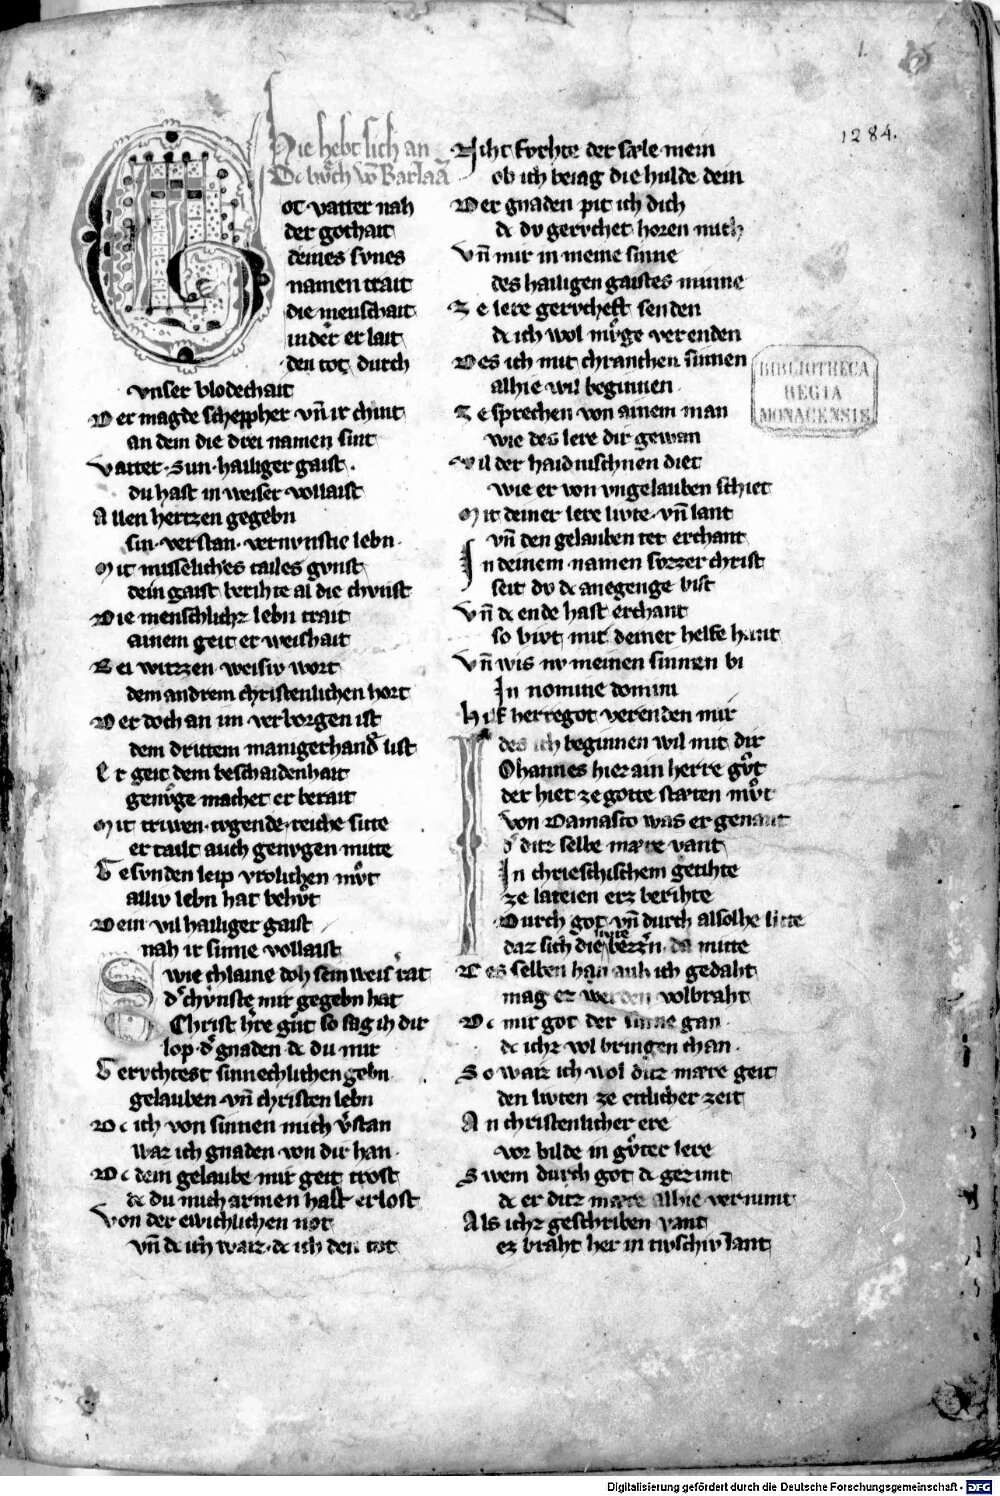 1.
1284.
Hie hebt sich an
Dc bůch võ Barlaã
Got vatter nah
der gothait
deines svnes
namen trait
die menschait
in der er lait
den tot durch
vnser blodechait
Der magde schepher vñ ir chint
an dem die drei namen sint
Vatter · sun · hailiger gaist ·
du hast in weiser vollaist
Allen hertzen gegebn
sin · verstan · vernvnstic lebn ·
Mit misseliches tailes gvnst
dein gaist berihte al die chvnst
Die menschlichz lebn trait
ainem geit er weishait
Bei witzzen weisiv wort
dem andrem christenlichen hort
Der doch an im verborgen ist
dem drittem manigerhand list
Er geit dem beschaidenhait
genvge machet er berait
Mit triwen · tvgende · reiche sitte
er tailt auch genvgen mitte
Gesvnden leip vrolichen mvt
alliv lebn hat behvt
Dein vil hailiger gaist
nah ir sinne vollaist
Swie chlaine doh sein weis rat
d' chvnste mir gegebn hat
Christ h're gůt so sag ih dir
lop d' gnaden dc du mir
Gervchtest sinnechlichen gebn
gelauben vñ christen lebn
Dc ich von sinnen mich v'stan
waz ich gnaden von dir han ·
Dc dem gelaube mir geit trost
dc du mich armen hast erlost
Von der ewichlichen not
vñ dc ich waiz · dc ich den tot
Niht fvrhte der sæle mein
ob ich beiag die hulde dein
Der gnaden pit ich dich
dc dv gervchet horen mich
Vñ mir in meine sinne
des hailigen gaistes minne
Ze lere gervchest senden
dc ich wol mvge verenden
Des ich mit chranchen sinnen
alhie wil beginnen ·
Ze sprechen von ainem man
wie des lere dir gewan
Vil der haidnischnen diet
wie er von vngelauben schiet
Mit deiner lere livte · vñ lant
vñ den gelauben tet erchant
In deinem namen svzzer christ
seit dv dc anegenge bist
Vñ dc ende hast erchant
so bivt mit deiner helfe hant
Vñ wis nv meinen sinnen bi
In nomine domini
Hilf herre got verenden mir
des ich beginnen wil mit dir
Iohannes hiez ain herre gvt
der hiet ze gotte stæten mvt
von Damasco was er genant
d' ditz selbe mære vant
In chrieschischem getihte
ze lateien erz berihte
Durch got vñ durch alsolhe sitte
daz sich die livte bezz'n da mitte
Des selben han auh ich gedaht
mag ez werden volbraht
Dc mir got der sinne gan
dc ichz vol bringen chan ·
So waiz ich wol ditz mære geit
den livten ze etlicher zeit
An christenlicher ere
vor bilde in gvter lere
Swem durch got dc gezimt
dc er ditz mære alhie vernimt
Als ichz geschriben vant
ez braht her in tivschiv lant
BIBLIOTHECA
REGIA
MONACENSIS
Digitalisierung gefördert durch die Deutsche Forschungsgemeinschaft - DFG